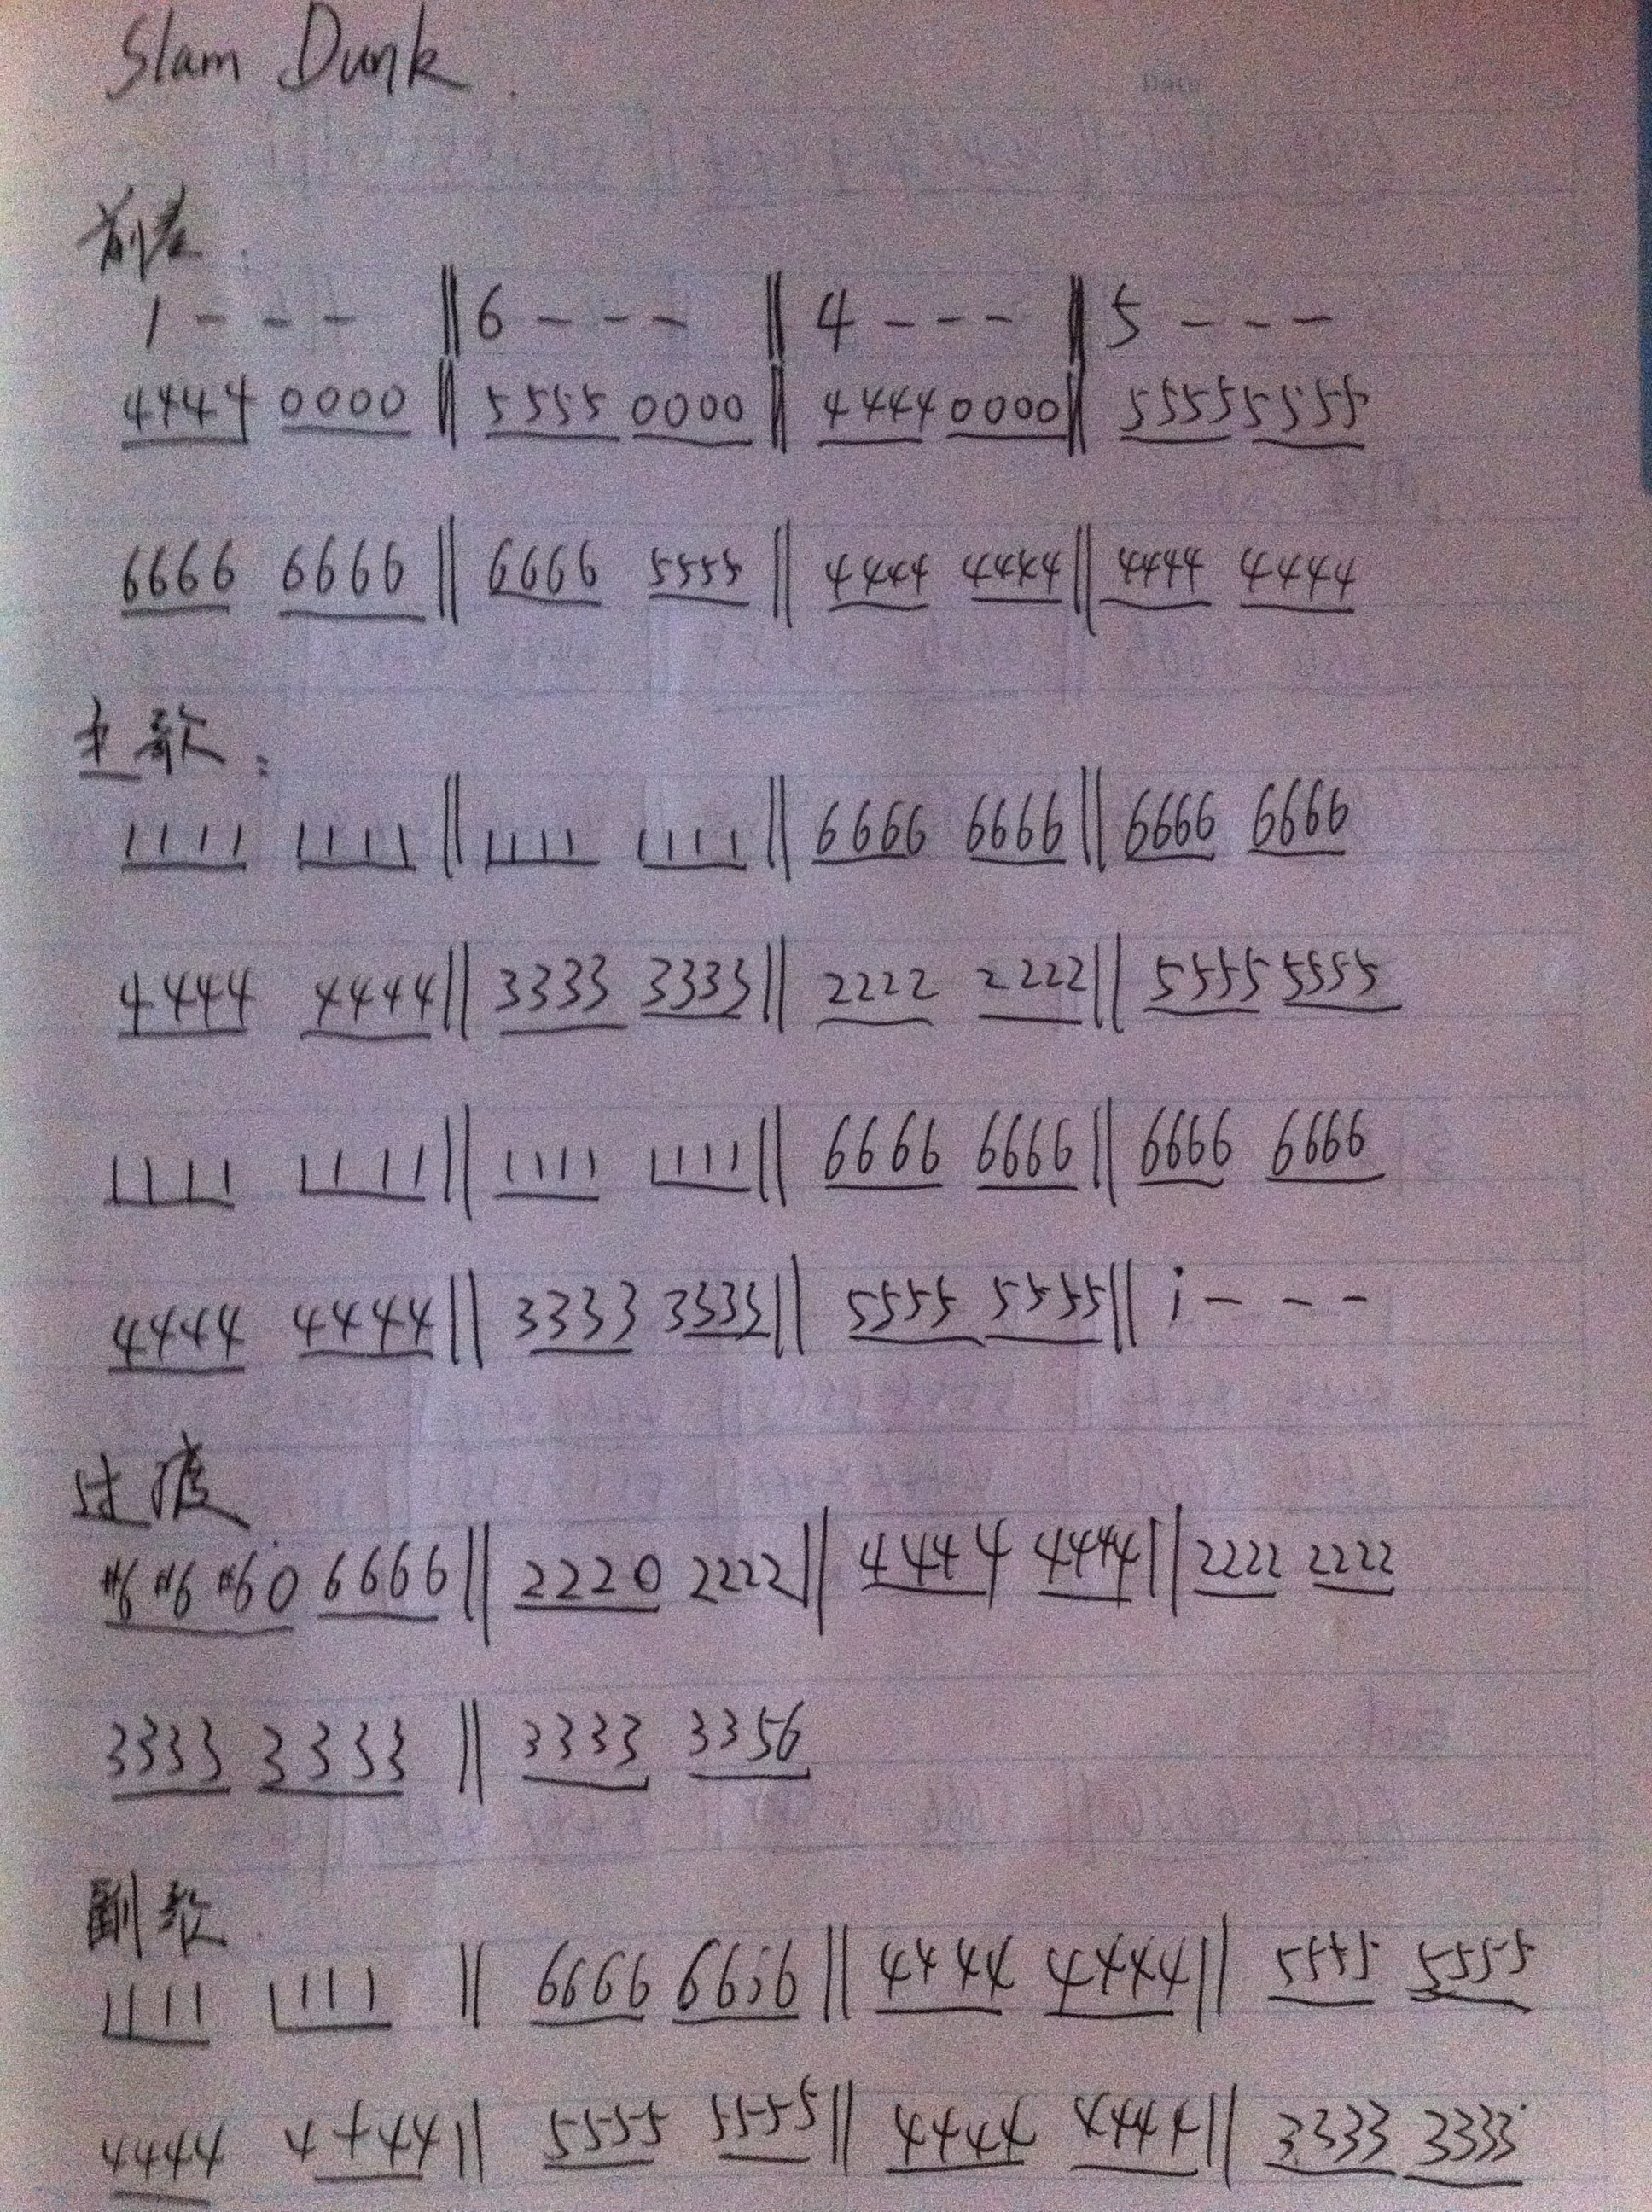 Slam Dunk.
前奏:
1 - - - || 6 - - - || 4 - - - || 5 - - -
4444 0000 || 5555 0000 || 4444 0000 || 5555 5555
6666 6666 || 6666 5555 || 4444 4444 || 4444 4444
主歌:
1111 1111 || 1111 1111 || 6666 6666 || 6666 6666
4444 4444 || 3333 3333 || 2222 2222 || 5555 5555
1111 1111 || 1111 1111 || 6666 6666 || 6666 6666
4444 4444 || 3333 3333 || 5555 5555 || i - - -
过度
#6#6#60 6666 || 2220 2222 || 4444 4444 || 2222 2222
3333 3333 || 3333 3356
副歌
1111 1111 || 6666 6656 || 4444 4444 || 5555 5555
4444 4444 || 5555 5555 || 4444 4444 || 3333 3333